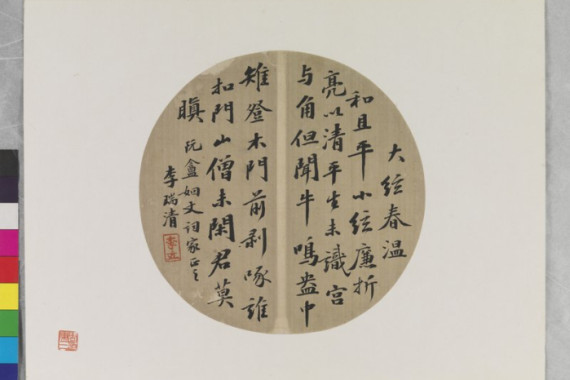 大絃春温
和且平小絃廉折
亮以清平生未識宫
与角但聞牛鳴盎中
雉登木門前剥啄誰
扣門山僧未閑君莫
瞋
阮盦姻丈詞家正之
李瑞清